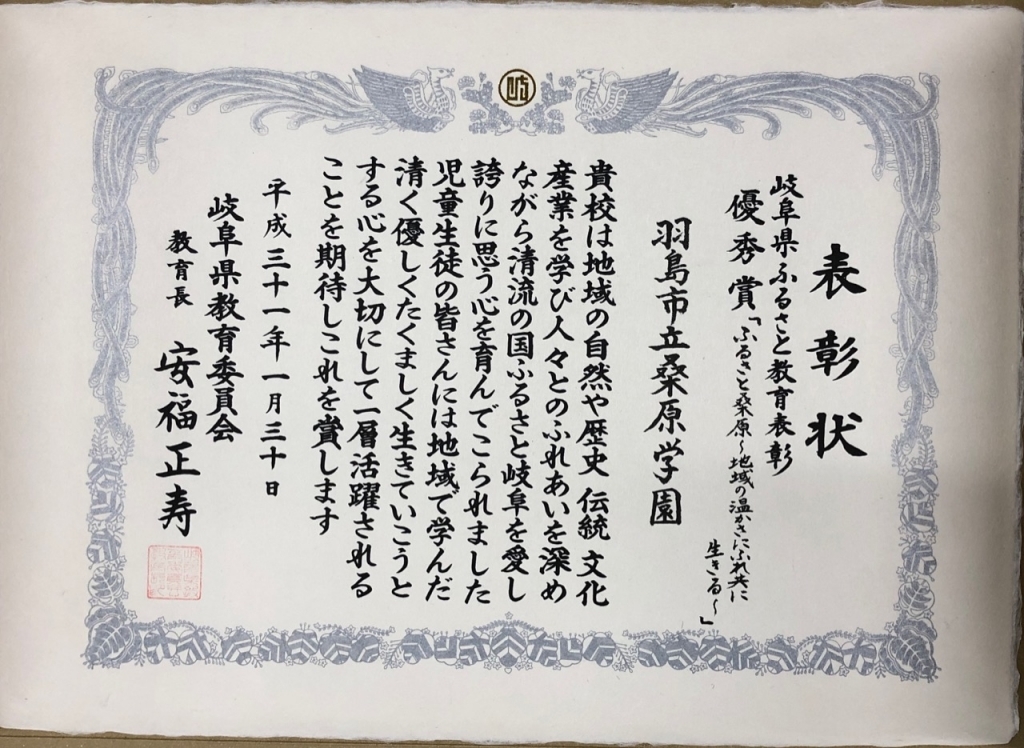 表彰状
岐阜県ふるさと教育表彰
優秀賞「ふるさと桑原～地域の温かさにふれ共に
生きる～」
羽島市立桑原学園
貴校は地域の自然や歴史 伝統 文化
産業を学び人々とのふれあいを深め
ながら清流の国ふるさと岐阜を愛し
誇りに思う心を育んでこられました
児童生徒の皆さんには地域で学んだ
清く優しくたくましく生きていこうと
する心を大切にして一層活躍される
ことを期待しこれを賞します
平成三十一年一月三十日
岐阜県教育委員会
教育長 安福正寿